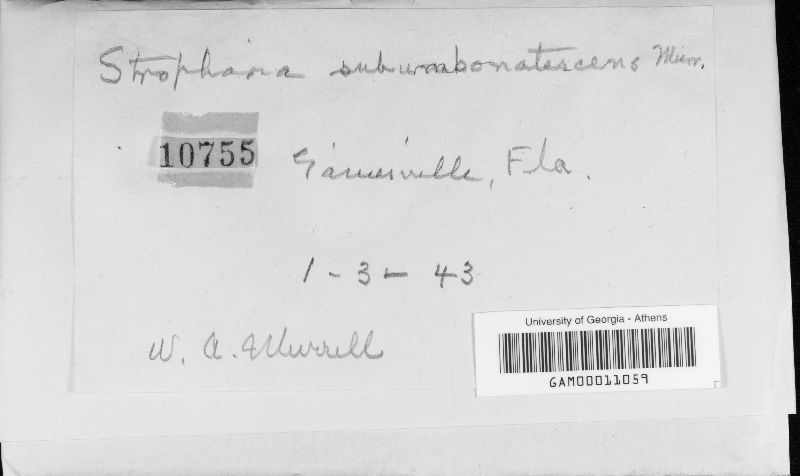 Stropharia subumbonatescens Murr.
10755 Gainesville, Fla.
1-3-43
W. A. Murrill
University of Georgia - Athens
GAM00011059